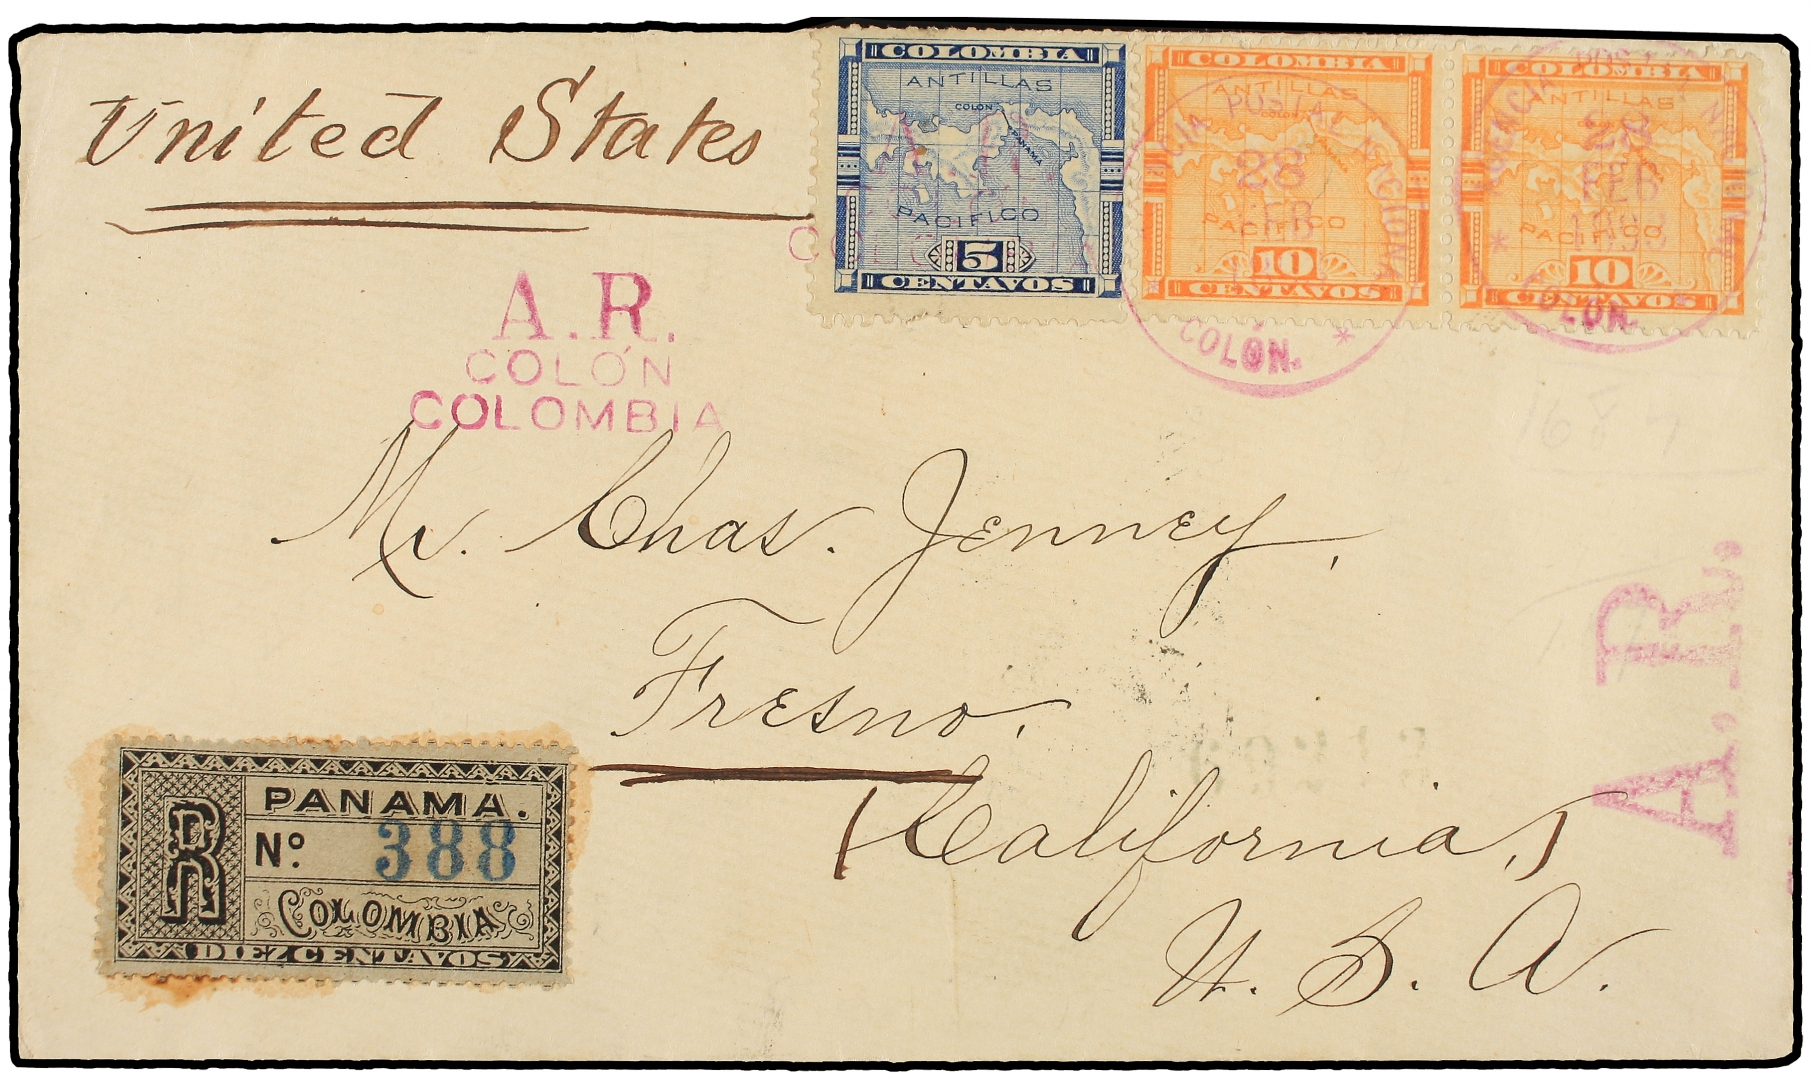 United States
COLOMBIA
ANTILLAS
COLON
PANAMA
PACIFICO
5
CENTAVOS
COLOMBIA
ANTILLAS
COLON
PACIFICO
10
CENTAVOS
COLOMBIA
ANTILLAS
PACIFICO
10
CENTAVOS
28
FEB
COLÓN.
28
FEB
COLÓN.
A.R.
COLÓN
COLOMBIA
Mr. Chas. Jenney,
Fresno.
(California,)
U. S. A.
A.R.
R
PANAMÁ.
No. 388
COLOMBIA
DIEZ CENTAVOS